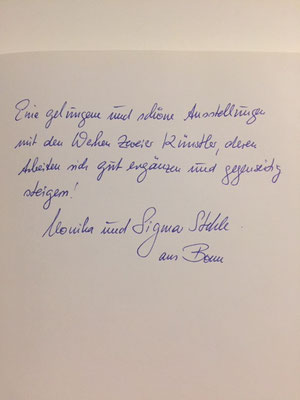 Eine gelungene und schöne Ausstellungen
mit den Werken zweier Künstler, deren
Arbeiten sich gut ergänzen und gegenseitig
steigern!
Monika und Sigmar
aus Bonn